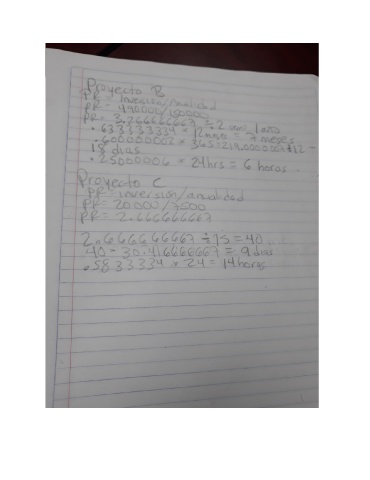 Proyecto B
PR = Inversión/Anualidad
PR = 490000/150000
PR = 3.266666667
.633333334 * 12 = 7 meses
.600000002 * 365 = 219.0000007 ÷ 12 =
18 dias
.25000006 * 24hrs = 6 horas
Proyecto C
PR = inversión/anualidad
PR = 20000/7500
PR = 2.666666667
2.6666666667 ÷ 15 = 40
40 - 30.41666667 = 9 dias
.5833334 * 24 = 14 horas